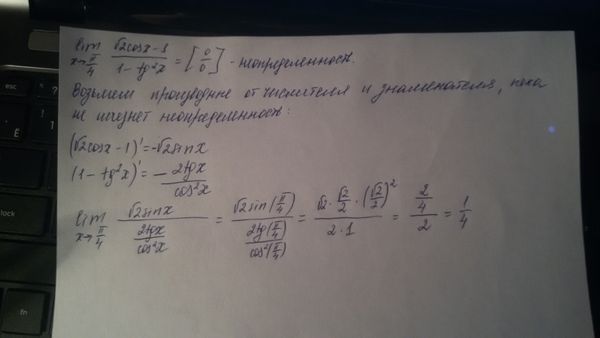 lim x→π/4 (√2cosx-1)/(1-tg²x) = [0/0] - неопределенность.
Возьмем производные от числителя и знаменателя, пока
не исчезнет неопределенность:
(√2cosx-1)' = -√2sinx
(1-tg²x)' = -2tgx/cos²x
lim x→π/4 (√2sinx)/(2tgx/cos²x) = (√2sin(π/4))/(2tg(π/4)/cos²(π/4)) = (√2·√2/2·(√2/2)²)/(2·1) = (2/4)/2 = 1/4
esc
fn